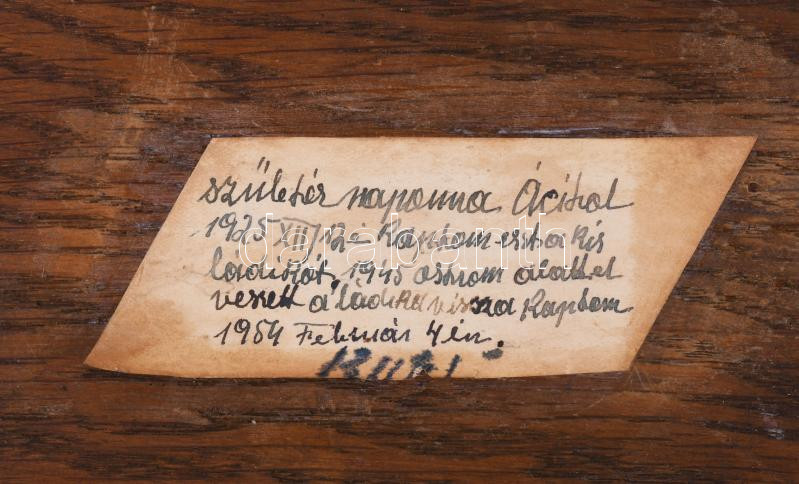 születés naponna Ácitol
1925 XII/12-é Kaptom ezt a kis
ládikát, 1945 ostrom alatt el
veszett a ládika vissza Kaptom
1954 Február 4 én.
darabanth